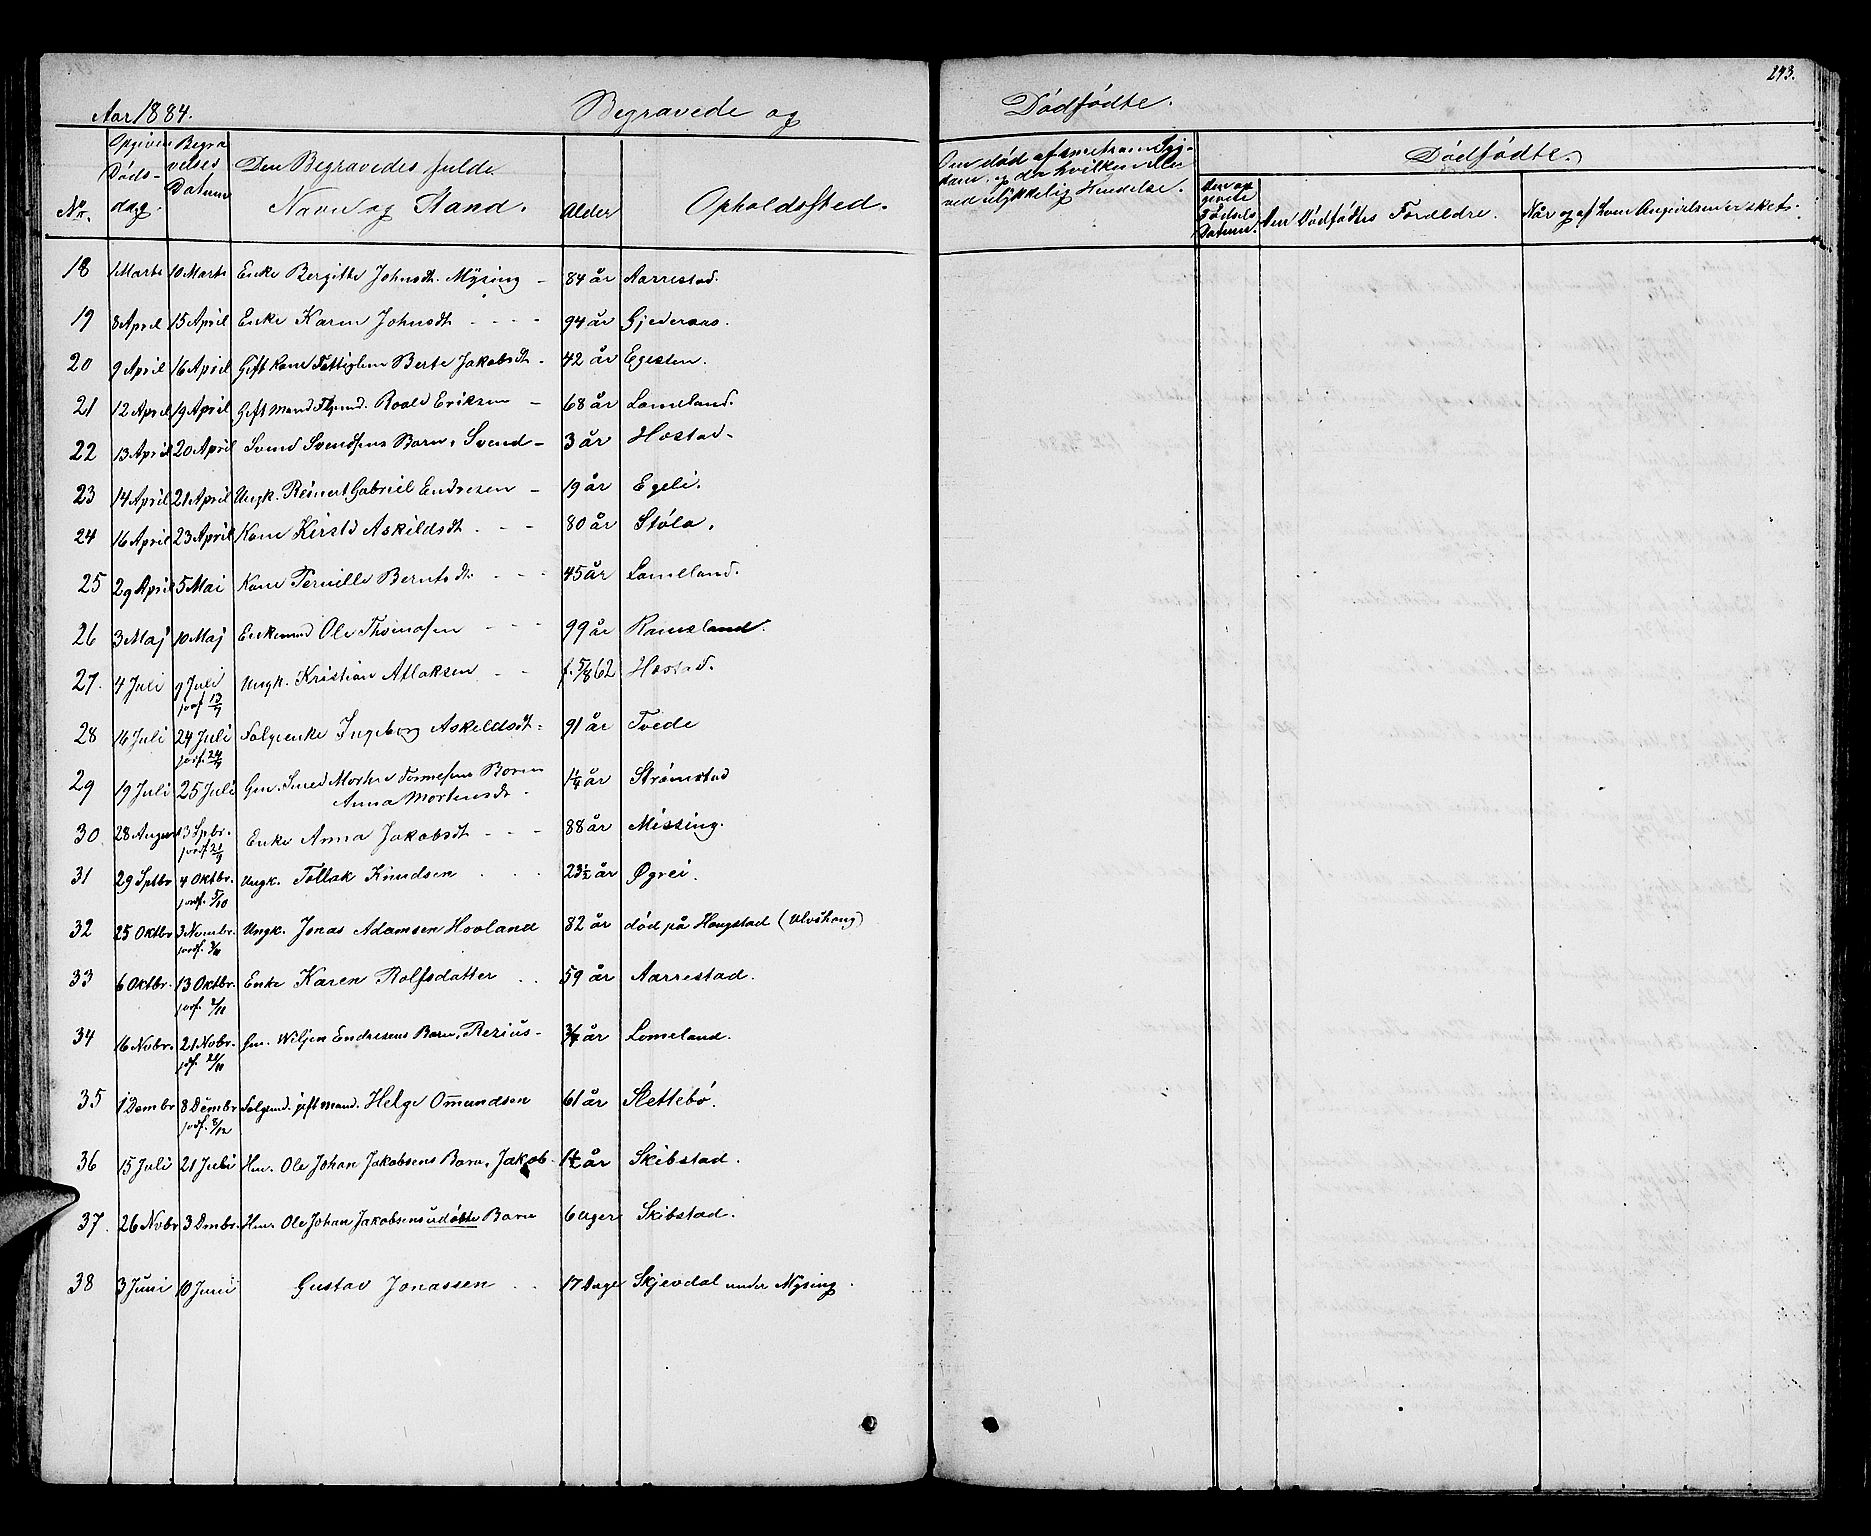 243.
Aar 1884. Begravede og Dødfødte.
No. Opgiven Døds-dag. Begravelses Datum Den Begravedes fulde Navn og Stand. Alder Opholdssted.
Om død af smetsom Syg-
dom, og da hvilken eller
ved ulykkelig Hendelse.
Dødfødte.
Den op-
givete
Fødsels
Datum.
Den Dødfødtes Foreldre.
Når og af hvem Angivelsen er skets.
18 1 Marts 10 Marts Enke Bergitte Johnsdt. Mÿsing - 84 år Aarrestad.
19 8 April 15 April Enke Karen Johnsdt - - - - 94 år Gjederaas.
20 9 April 16 April Gift kone Fattiglem Berte Jakobsdt - 42 år Egesten.
21 12 April 19 April Gift Mand Roald Eriksen - 68 år Lomeland.
22 13 April 20 April Svend Svendsens Barn, Svend - 3 år Hostad.
23 14 April 21 April Ungk. Reinert Gabriel Endresen - 19 år Egeli.
24 16 April 23 April Kone Kirsti Askildsdt - - - 80 år Støla.
25 29 April 5 Mai Kone Pernille Berntsdt. - - - 45 år Lomeland.
26 3 Maj 10 Maj Enkemand Ole Thomasen - - - 99 år Ramsland.
27. 4 Juli 9 Juli Ungk. Kristian Atlaksen - - - f. 5/8 62 Hostad.
jordf 13/7
28 16 Juli 24 Juli Folgeenke Ingeborg Askeldsdt - 91 år Tvede
jordf. 24/7
29 19 Juli 25 Juli Gm. Smed Morten Tønnesens Barn 1¼ år Strømstad
Anna Mortensdt -
30. 28 August 13 Spbr. Enke Anna Jakobsdt - - - 88 år Missing.
jordf 21/9
31 29 Sptbr 4 Oktbr. Ungk. Tollak Knudsen - - - 23½ år Øgrei.
jordf. 5/10
32 25 Oktbr 3 Novmbr. Ungk. Jonas Adamsen Hovland 82 år død på Haugstad (Ulvshaug)
jordf. 3/11
33 6 Oktbr. 13 Oktbr. Enke Karen Rolfsdatter - - 59 år Aarrestad.
jordf.
34 16 Novbr. 21 Nobr. Gm. Wiljen Endresens Barn, Rezius - ¾ år Lomeland.
jdf.
35 1 Dembr 8 Dembr Folgemd. gift mand. Helge Om̅undsen 61 år Slettebø.
jordf. 8/12
36 15 Juli 21 Juli Hm. Ole Johan Jakobsens Barn, Jakob - 1½ år Skibstad.
37. 26 Novbr 3 Dmbr. Hm. Ole Johan Jakobsens udøbte Barn 6 Uger Skibstad.
38 3 Juni 10 Juni Gustav Jonassen - - 17 Dage Skjevdal under Mÿsing.